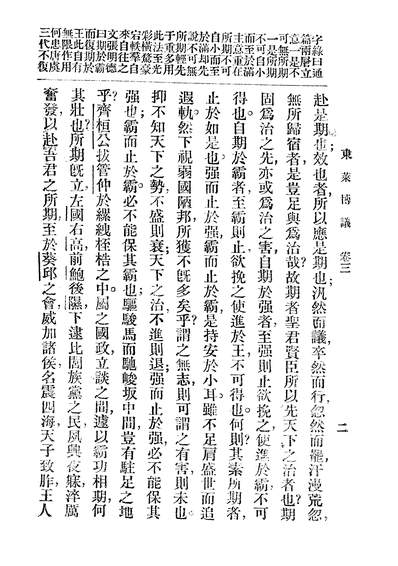 東萊博議 卷三 二
字緣曰通
篇兩層立
意一是不
可無所期
一是所期
不可自小
而至於滿
主意重在
所期不可
自小而至
於滿却先
說不可無
所期輕先
于重多用
此法至光
彩橫鶩豪
宕軼羣自
來自往之
文張明德
曰期於霸
而復期於
王此自有
無限作用
何患唐虞
三代不復
赴是期也;效也者,所以應是期也;汎然而議,卒然而行,忽然而罷,汗漫荒忽,
無所歸宿者,是豈足與爲治哉?故期者,聖君賢臣所以先天下之治者也?期
固爲治之先,亦或爲治之害,自期於强者,至强則止,欲挽之使進於霸,不可
得也。自期於霸者,至霸則止,欲挽之使進於王,不可得也。何則?其素所期者,
止於如是也,强而止於强,霸而止於霸,是持安於小耳,雖不足肩盛世而追
遐軌,然下視弱國陋邦,所獲不旣多矣乎?謂之無志則可,謂之有害則未也
抑不知天下之勢,不盛則衰,天下之治,不進則退,强而止於强,必不能保其
强也;霸而止於霸,必不能保其霸也;驅駿馬而馳峻坂,中間豈有駐足之地
乎?齊桓公拔管仲於縲絏桎梏之中,屬之國政,立談之間,遽以霸功相期,何
其壯也?所期旣立,左國右高,前鮑後隰,下逮比閭族黨之民,夙興夜寐,淬厲
奮發,以赴吾君之所期,至於葵邱之會,威加諸侯,名震四海,天子致胙,王人